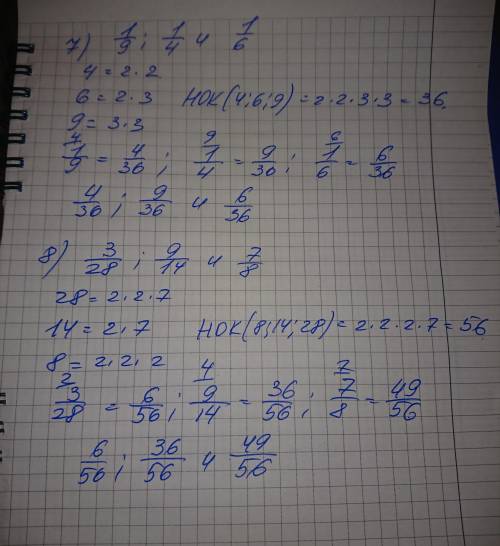 7) 1/9 ; 1/4 и 1/6
4 = 2 · 2
6 = 2 · 3 НОК(4; 6; 9) = 2 · 2 · 3 · 3 = 36.
9 = 3 · 3
4 9 6
1/9 = 4/36 ; 1/4 = 9/36 ; 1/6 = 6/36
4/36 ; 9/36 и 6/36
8) 3/28 ; 9/14 и 7/8
28 = 2 · 2 · 7
14 = 2 · 7 НОК(8; 14; 28) = 2 · 2 · 2 · 7 = 56
8 = 2 · 2 · 2
2 4 7
3/28 = 6/56 ; 9/14 = 36/56 ; 7/8 = 49/56
6/56 ; 36/56 и 49/56